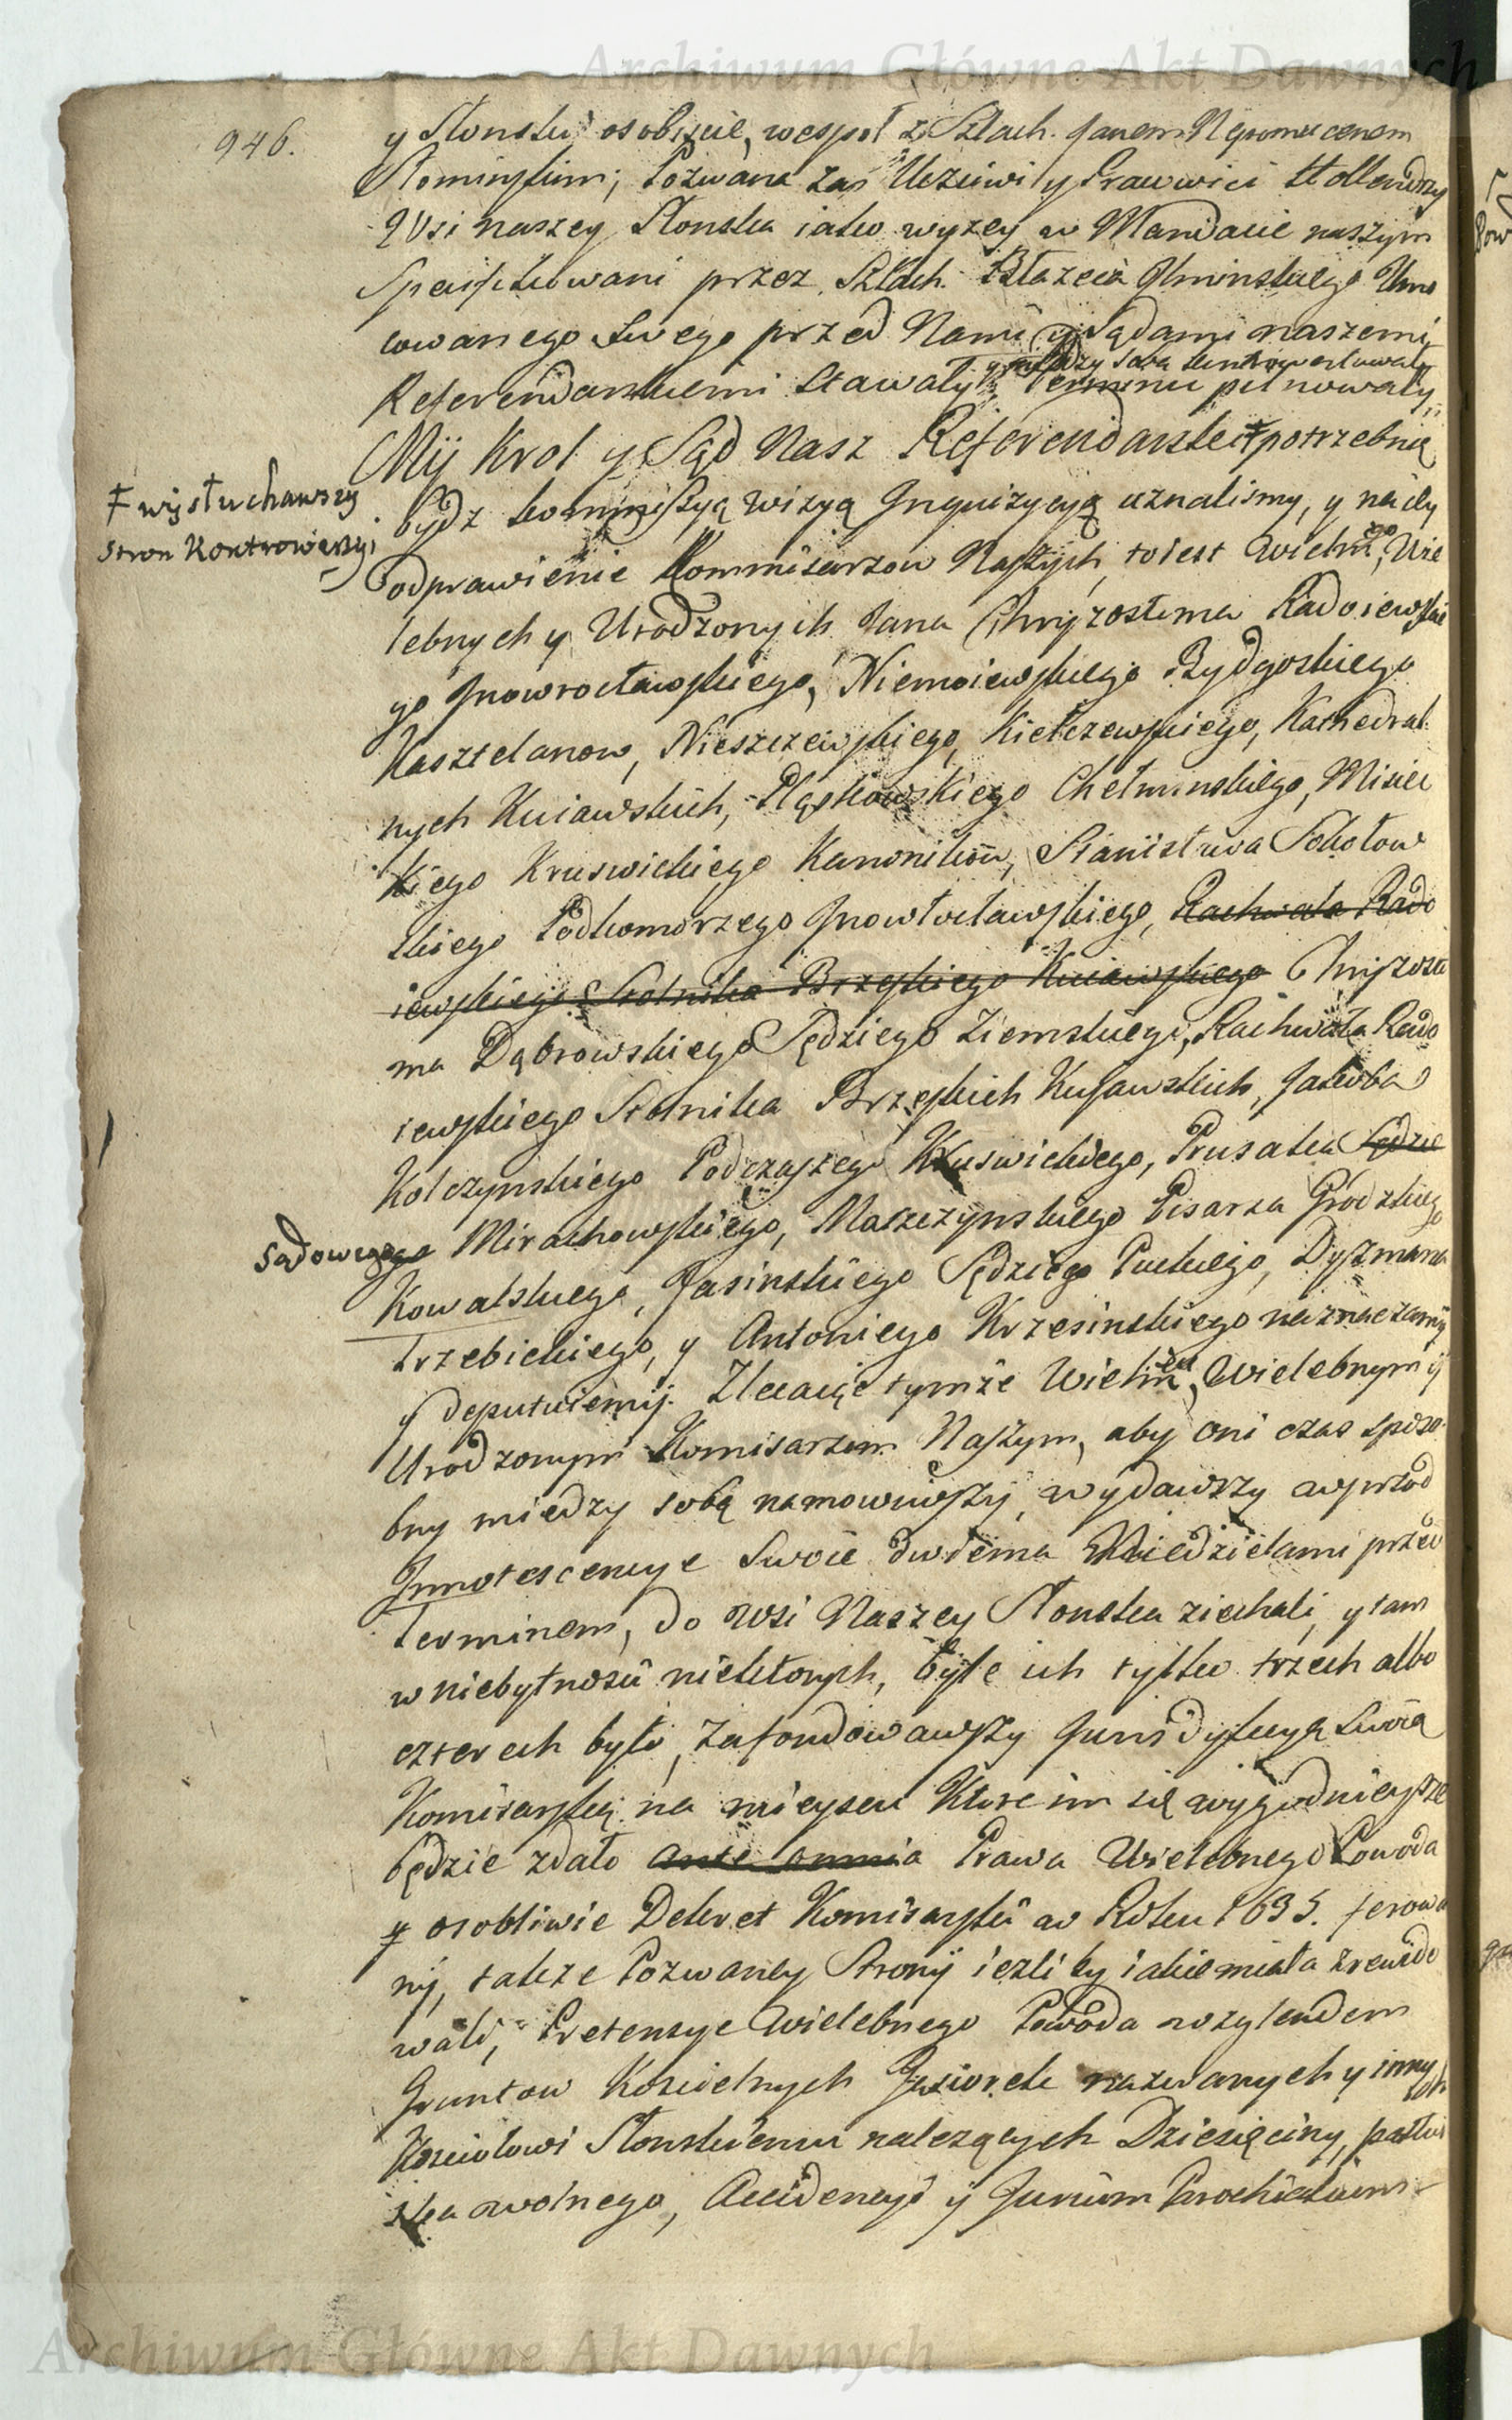 Archiwum Główne Akt Dawnych
946.
y Słonsku osobiscie, wespoł z Szlach. Janem Nepomucenem
Słominskim; Pozwana zas Uczciwi y Pracowici Hollendrzy
Wsi naszey Słonska iako wyzey w Mandacie naszym
Specifikowani przez Szlach. Błazeia Gminskiego Umo
cowanego Swego przed Nami y Sądami naszemi
y między sobą kontrowertowały
Referendarskiemi stawały, Terminu pilnowały,
Mÿ Krol y Sąd Nasz Referendarski ŧ potrzebną
ŧ wysłuchawszy
stron Kontrowersyi
bydz kommissyą wizyą Inquizycyą uznalismy, y na iey
odprawienie Kommisarzow Naszych, to iest Wielm.go, Wie
lebnych y Urodzonych Jana Chryzostoma Radoiewskie
go Inowrocławskiego, Niemoiewskiego Bydgoskiego
Kasztelanow, Nieszczewskiego, Kiełczewskiego, Kathedral
nych Kuiawskich, Pląskowskiego Chełminskiego, Misiec
kiego Kruswickiego Kanonikow, Stanisława Sokołow
skiego Podkomorzego Inowłocławskiego, Rachwała Rado
iewskiego Stolnika Brzeskiego Kuiawskiego Chryzosto
ma Dąbrowskiego Sędziego Ziemskiego, Rachwała Rado
iewskiego Stolnika Brzeskich Kujawskich, Jakoba
Kolczynskiego Podczaszego Kruswickiego, Prusaka Sędzie
Sądowego go Mirachowskiego, Maszczynskiego Pisarza Grodzkiego
Kowalskiego, Jasinskiego Sędziego Puckiego, Dyzmana
Trzebickiego, y Antoniego Krzesinskiego naznaczamy
y deputuiemy. Zlecaiąc tymże Wielm.m, Wielebnym y
Urodzonym Komisarzom Naszym, aby oni czas sposo-
bny między sobą namowiwszy, wydawszy wprzod
Innotescencye Swoie dwiema Niedzielami przed
terminem, do Wsi Naszey Słonska ziechali, y tam
w niebytnosci niektorych, byle ich tylko trzech albo
czterech było, zafondowawszy Jurisdykcyą Swoią
Komisarską na mieyscu Ktore im się wygodnieysze
będzie zdało ante omnia Prawa Wielebnego Powoda
y osobliwie Dekret Komisarski w Roku 1635. ferowa
ny, także Pozwaney Strony iezliby iakie miała zrewido
wali, Pretensye Wielebnego Powoda względem
Gruntow Koscielnych Jeziorek nazwanych y innych
Kosciołowi Słonskiemu nalezących Dziesięciny, pastwi
ska wolnego, Accidencyi y Jurium Parochialium
Archiwum Główne Akt Dawnych